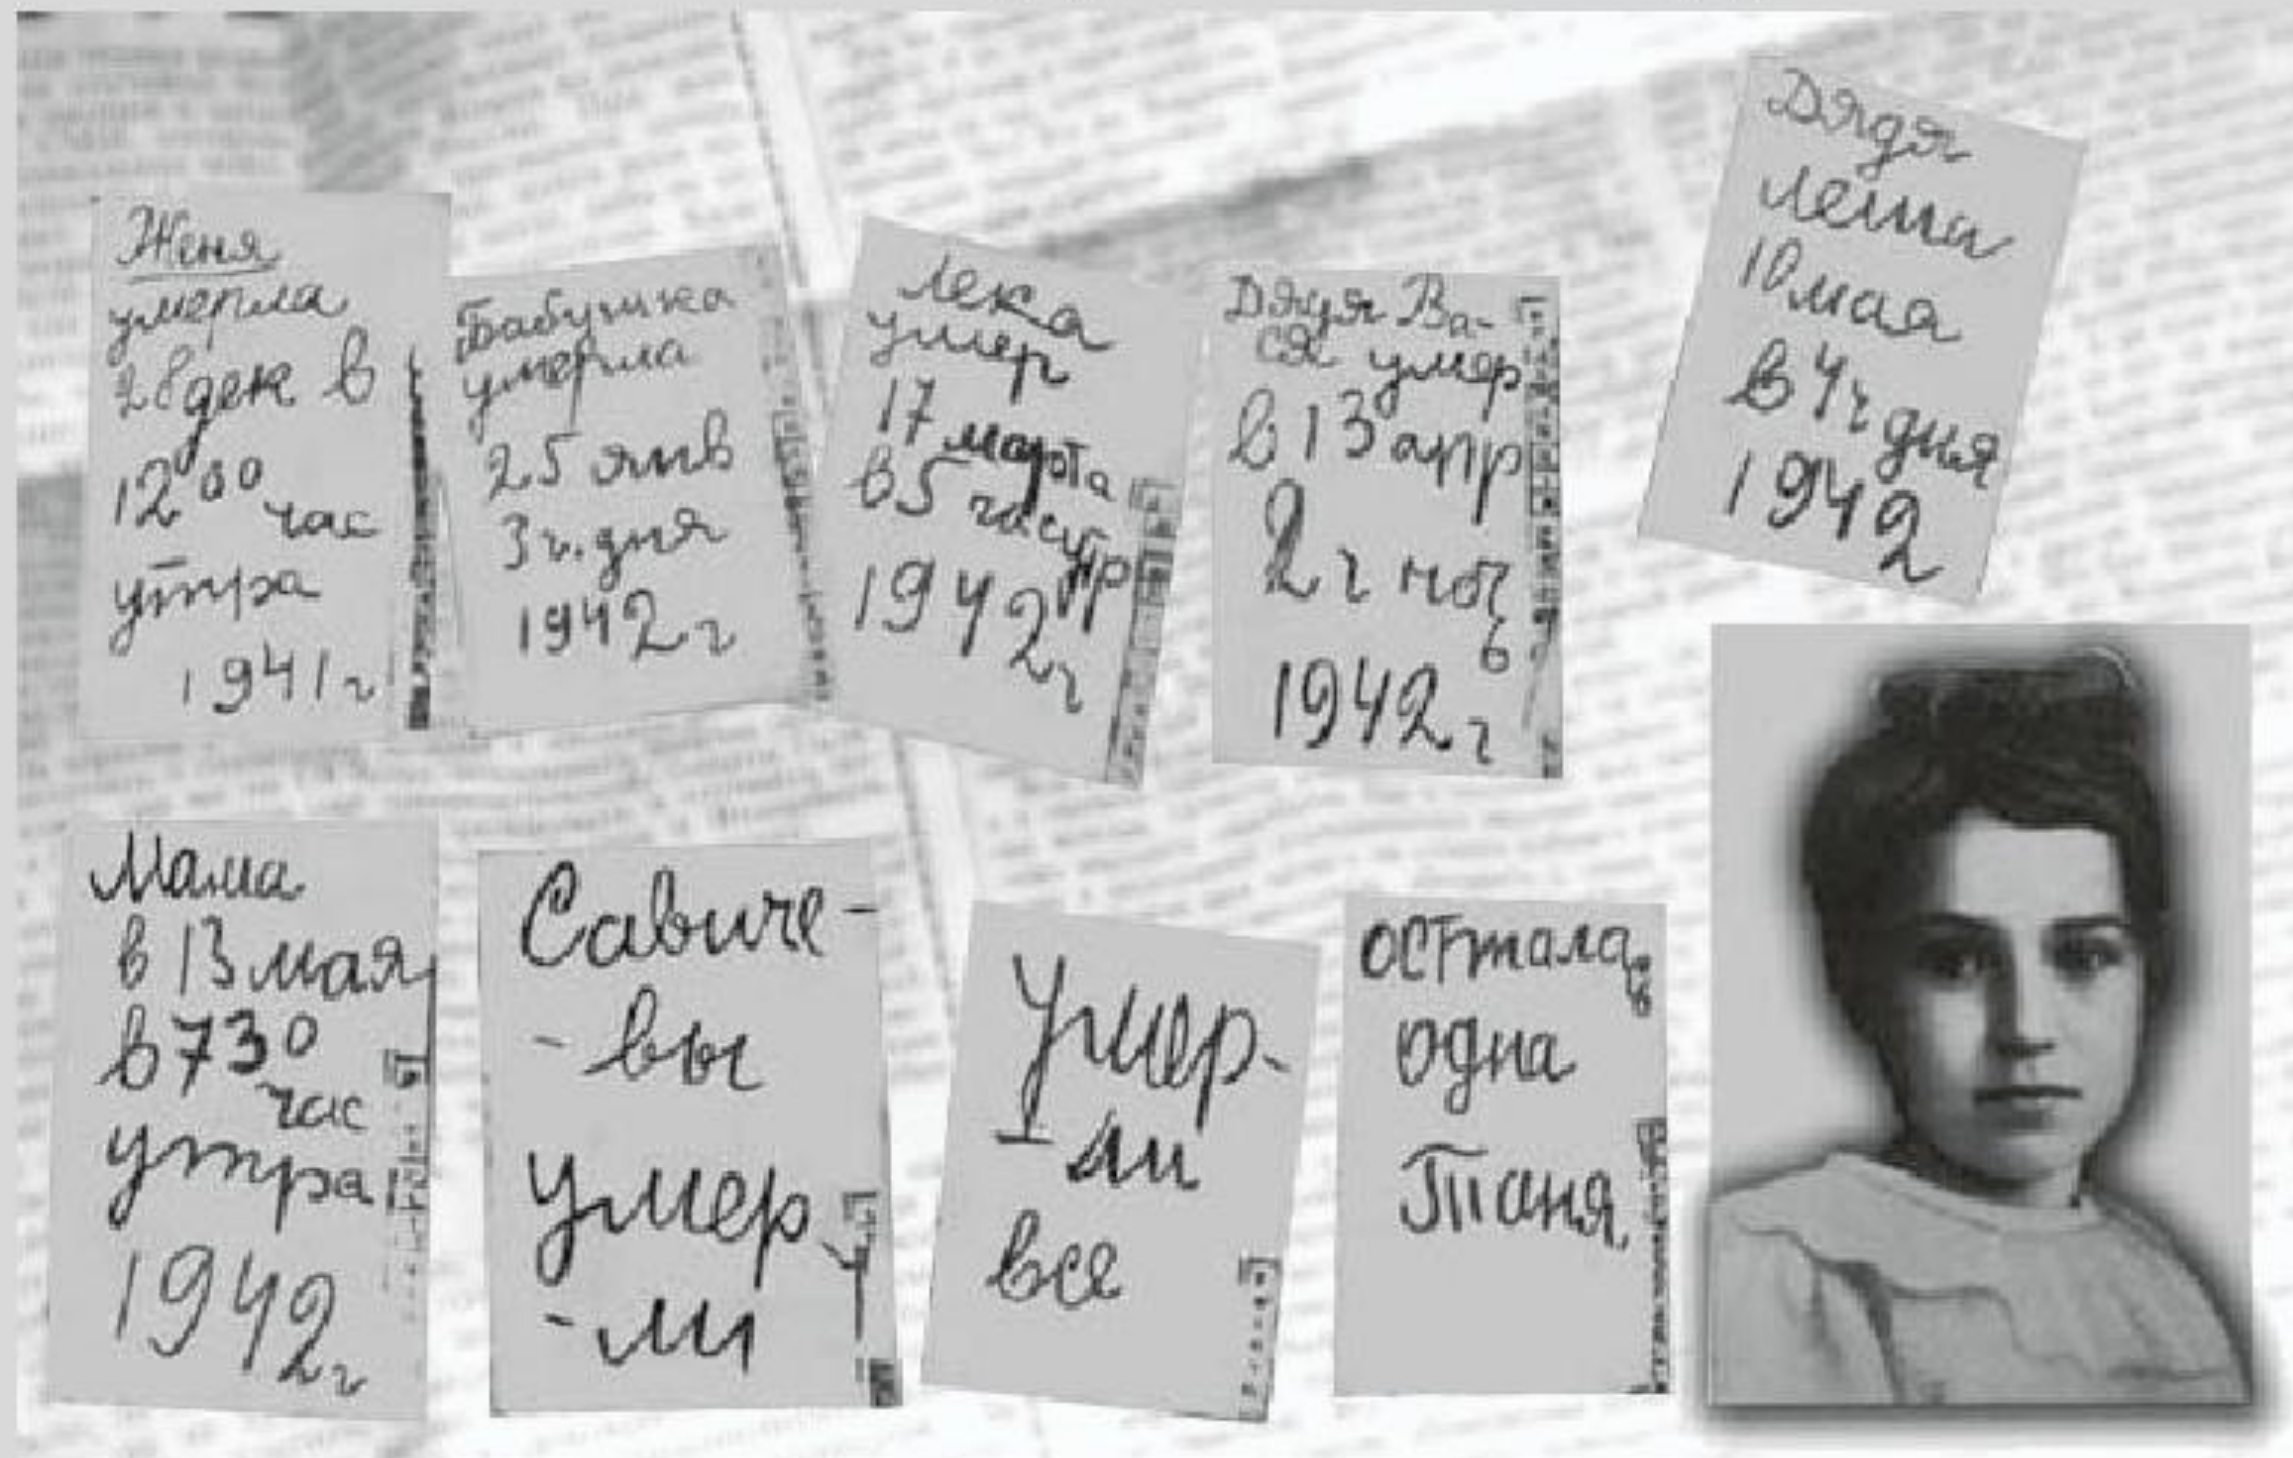 Женя
умерла
28 дек в
12 00 час
утра
1941 г
Бабушка
умерла
25 янв
3 ч. дня
1942 г
Лека
умер
17 марта
в 5 час утр
1942 г
Дядя Ва-
ся умер
в 13 апр
2 ч ноч
ь
1942 г
Дядя
Леша
10 мая
в 4 ч дня
1942
Мама
в 13 мая
в 7 30
час
утра
1942 г
Савиче-
-вы
умер
-ли
Умер-
-ли
все
Осталась
одна
Таня